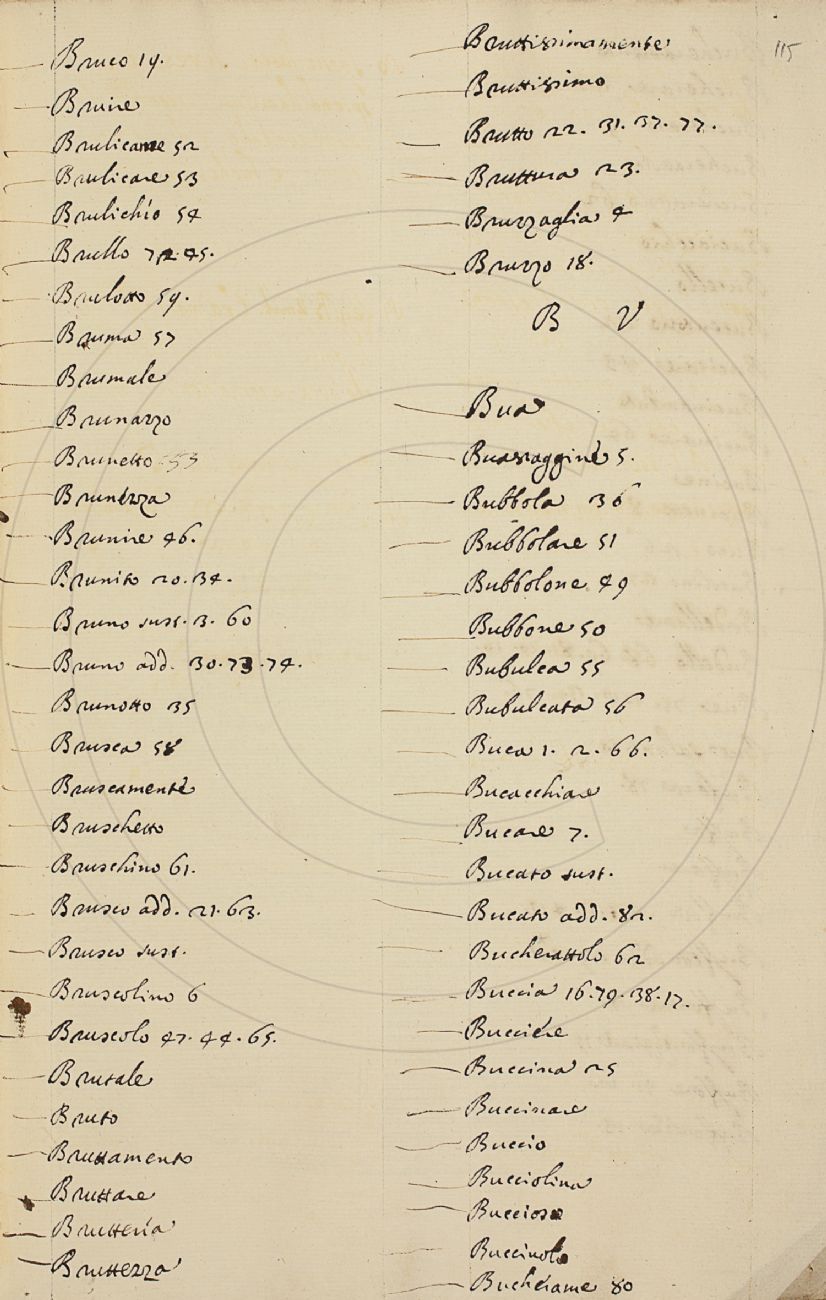 115
Bruco 19.
Bruire
Brulicame 52
Brulicare 53
Brulichio 54
Brullo 72. 45.
Brulotto 59.
Bruma 57
Brumale
Brunazzo
Brunetto
Brunezza
Brunire 46.
Brunito 20. 34.
Bruno sust. 3. 60
Bruno add. 30. 73. 74.
Brunotto 35
Brusca 58
Bruscamente
Bruschetto
Bruschino 61.
Brusco add. 21. 63.
Brusco sust.
Bruscolino 6
Bruscolo 47. 44. 65.
Brutale
Bruto
Bruttamento
Bruttare
Brutteria
Bruttezza
Bruttissimamente
Bruttissimo
Brutto 22. 31. 37. 77.
Bruttura 23.
Bruzzaglia 4
Bruzzo 18.
B V
Bua
Buassaggine 5.
Bubbola 36
Bubbolare 51
Bubbolone 49
Bubbone 50
Bubulca 55
Bubulcata 56
Buca 1. 2. 66.
Bucacchiare
Bucare 7.
Bucato sust.
Bucato add. 82.
Bucherattolo 62
Buccia 16. 79. 38. 17.
Bucciere
Buccina 25
Buccinare
Buccio
Bucciolina
Buccioso
Bucciuolo
Bucherame 80